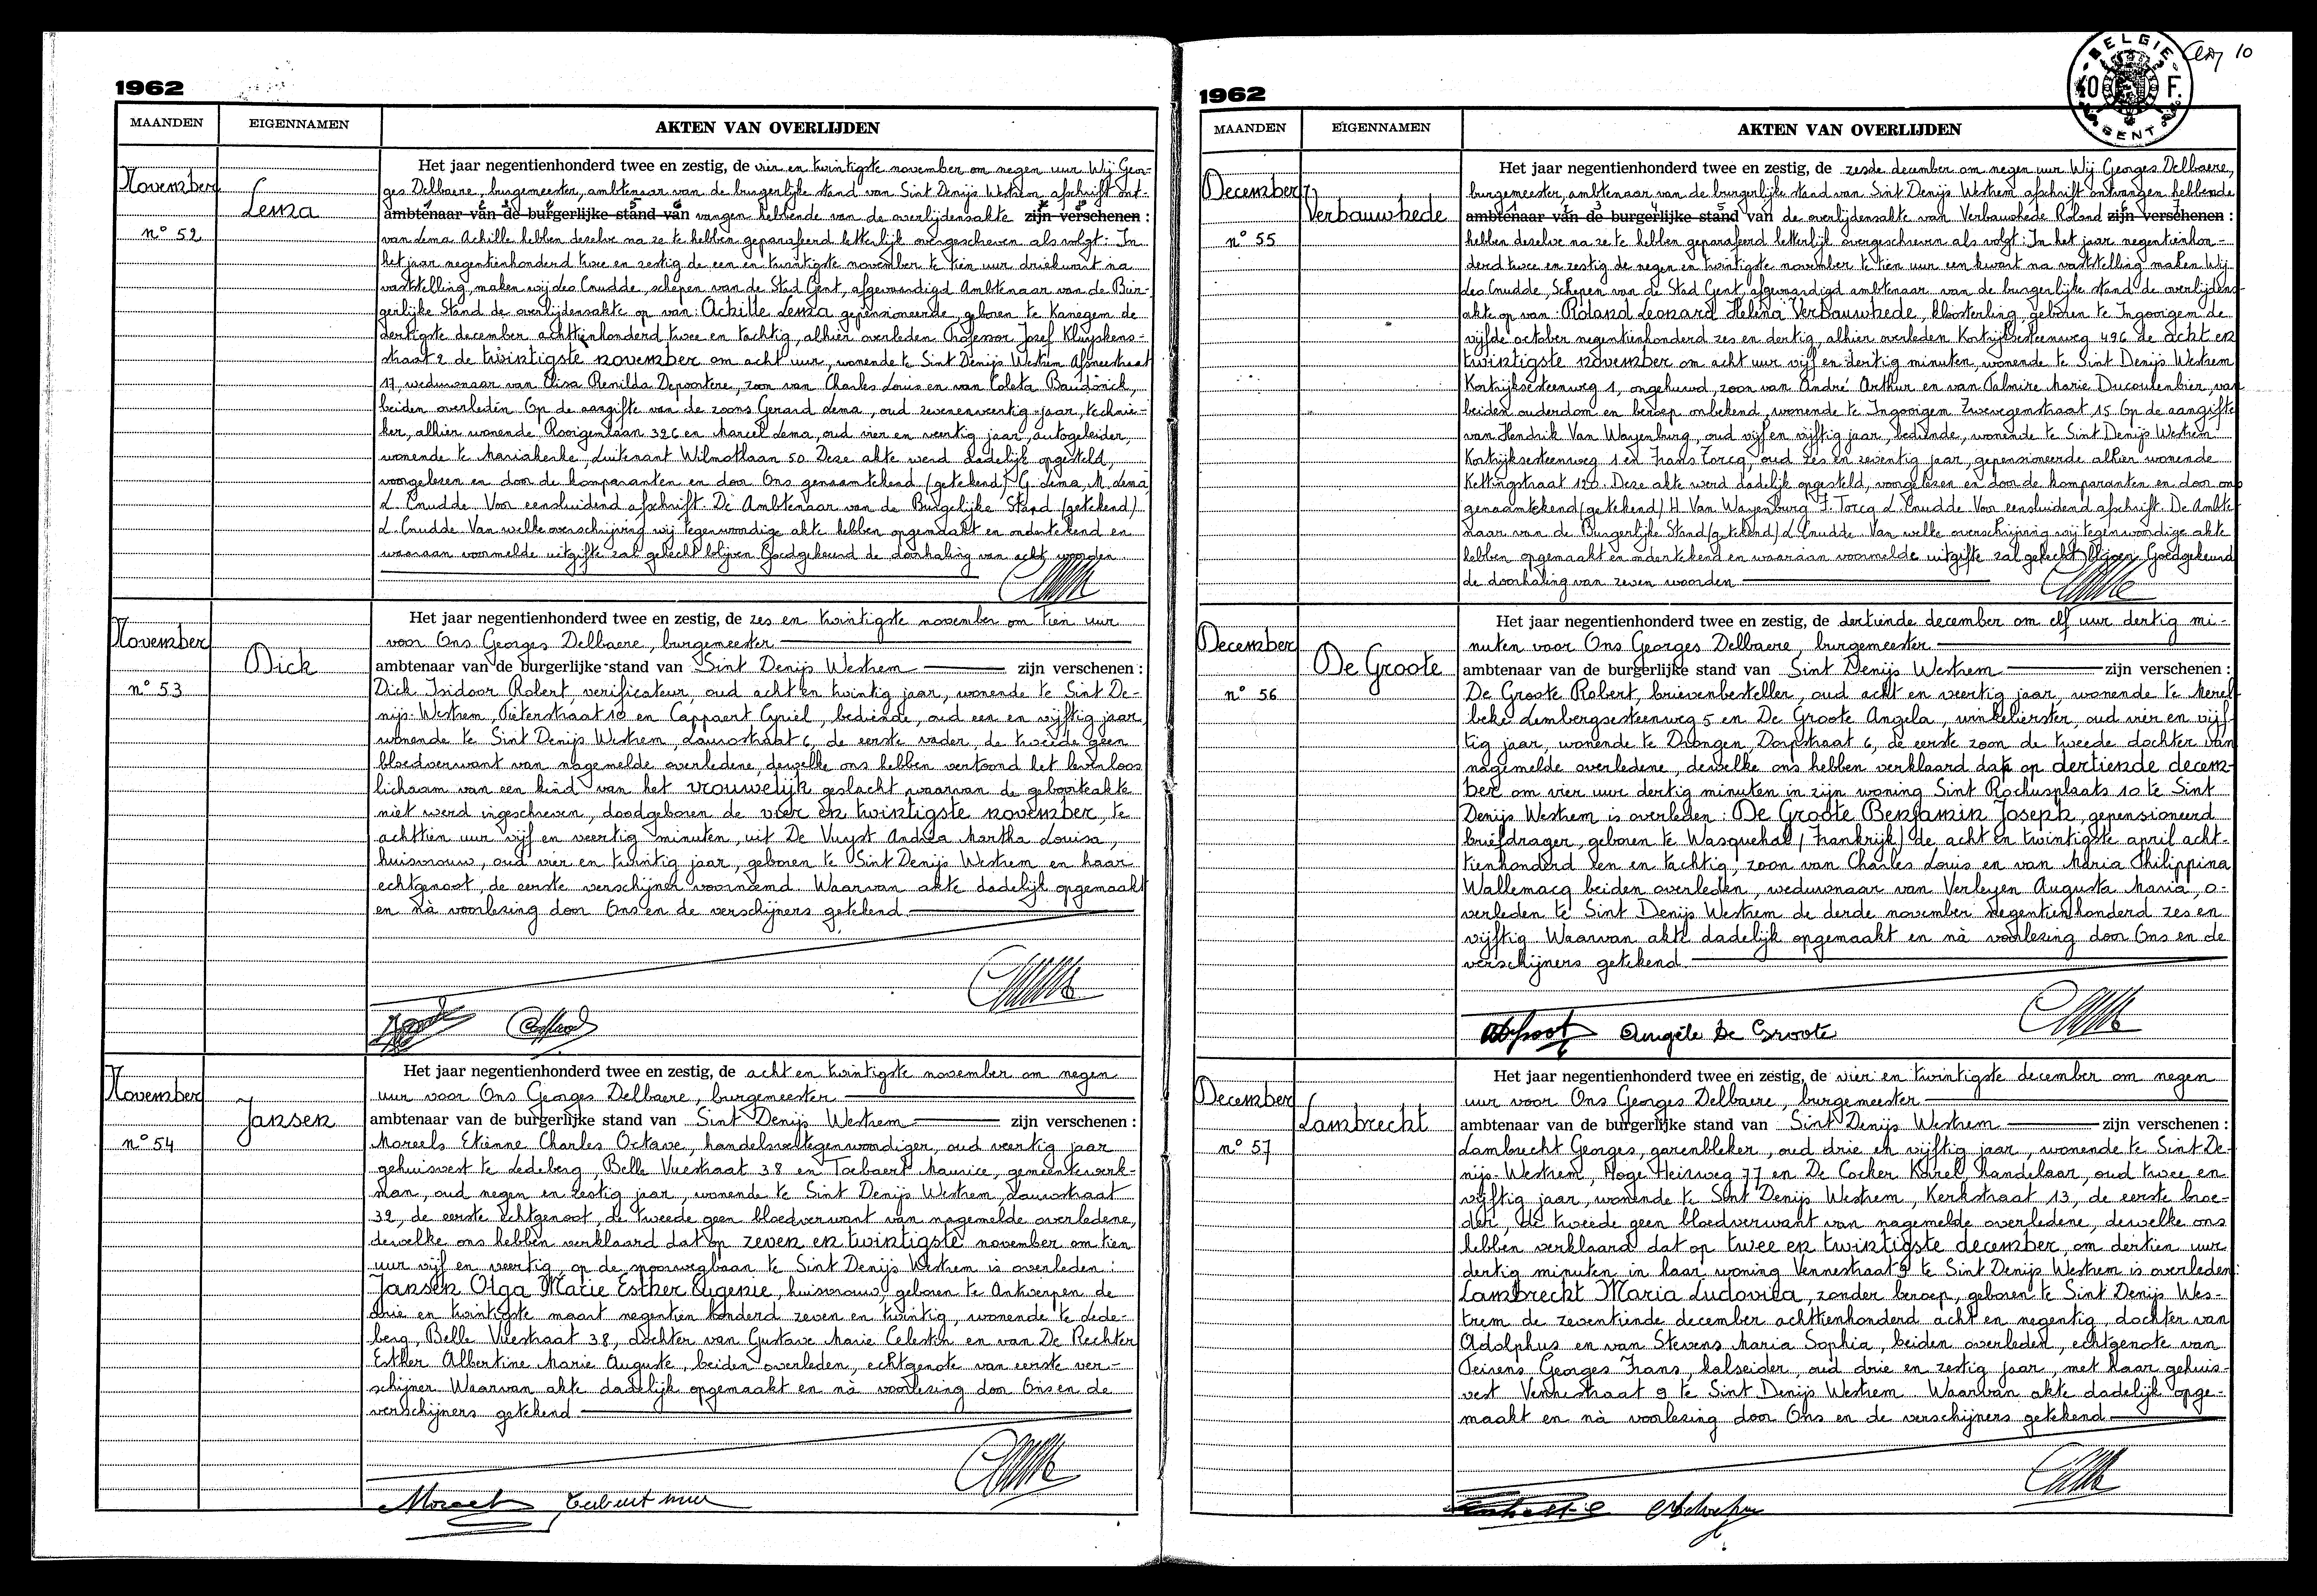 1962
MAANDEN EIGENNAMEN AKTEN VAN OVERLIJDEN
November
Lema
n° 52
Het jaar negentienhonderd twee en zestig, de vier en twintigste november om negen uur Wij Geor-
ges Delbaere, burgemeester, ambtenaar van de burgerlijke stand van Sint Denijs Westrem afschrift ont-
ambtenaar van de burgerlijke stand van vangen hebbende van de overlijdensakte zijn verschenen :
van Lema Achille hebben dezelve na ze te hebben geparafeerd letterlijk overgeschreven als volgt: In
het jaar negentienhonderd twee en zestig de een en twintigste november te tien uur driekwart na
vaststelling, maken wij Leo Cnudde, schepen van de Stad Gent, afgevaardigd Ambtenaar van de Bur-
gerlijke Stand de overlijdensakte op van: Achille Lema gepensioneerde, geboren te Kanegem de
dertigste december achttienhonderd twee en tachtig, alhier overleden Professor Jozef Kluyskens-
straat 2 de twintigste november om acht uur, wonende te Sint Denijs Westrem Afsneestraat
17, weduwnaar van Elisa Renilda Depoortere, zoon van Charles Louis en van Coleta Baudonck,
beiden overleden Op de aangifte van de zoons Gerard Lema, oud zevenenveertig jaar, technie-
ker, alhier wonende Rooigemlaan 326 en Marcel Lema, oud vier en veertig jaar, autogeleider,
wonende te Mariakerke, Luitenant Wilmotlaan 50 Deze akte werd dadelijk opgesteld,
voorgelezen en door de komparanten en door Ons genaamtekend (getekend) G. Lema, M. Lema
L. Cnudde. Voor eensluidend afschrift. De Ambtenaar van de Burgelijke Stand (getekend)
L. Cnudde. Van welke overschrijving wij tegenwoordige akte hebben opgemaakt en ondertekend en
waaraan voormelde uitgifte zal gehecht blijven Goedgekeurd de doorhaling van acht woorden
November
Dick
n° 53
Het jaar negentienhonderd twee en zestig, de zes en twintigste november om tien uur
voor Ons Georges Delbaere, burgemeester
ambtenaar van de burgerlijke stand van Sint Denijs Westrem zijn verschenen :
Dick Isidoor Robert, verificateur, oud acht en twintig jaar, wonende te Sint De-
nijs-Westrem, Pieterstraat 10 en Cappaert Cyriel, bediende, oud een en vijftig jaar
wonende te Sint Denijs Westrem, Lauwstraat 6, de eerste vader, de tweede geen
bloedverwant van nagemelde overledene, dewelke ons hebben vertoond het levenloos
lichaam van een kind van het vrouwelijk geslacht waarvan de geboorteakte
niet werd ingeschreven, doodgeboren de vier en twintigste november, te
achttien uur vijf en veertig minuten, uit De Vuyst Andréa Martha Louisa,
huisvrouw, oud vier en twintig jaar, geboren te Sint Denijs Westrem en haar
echtgenoot, de eerste verschijner voornoemd Waarvan akte dadelijk opgemaakt
en nà voorlezing door Ons en de verschijners getekend
November
Jansen
n° 54
Het jaar negentienhonderd twee en zestig, de acht en twintigste november om negen
uur voor Ons Georges Delbaere, burgemeester
ambtenaar van de burgerlijke stand van Sint Denijs Westrem zijn verschenen :
Moreels Etienne Charles Octave, handelsvertegenwoordiger, oud veertig jaar
gehuisvest te Ledeberg, Belle Vuestraat 38 en Taebaert Maurice, gemeentewerk-
man, oud negen en zestig jaar, wonende te Sint Denijs Westrem, Lauwstraat
32, de eerste echtgenoot, de tweede geen bloedverwant van nagemelde overledene,
dewelke ons hebben verklaard dat op zeven en twintigste november om tien
uur vijf en veertig, op de spoorwegbaan te Sint Denijs Westrem is overleden :
Jansen Olga Marie Esther Eugenie, huisvrouw, geboren te Antwerpen de
drie en twintigste maart negentien honderd zeven en twintig, wonende te Lede-
berg, Belle Vuestraat 38, dochter van Gustave Marie Celestin en van De Rechter
Esther Albertine Marie Auguste, beiden overleden, echtgenote van eerste ver-
schijner Waarvan akte dadelijk opgemaakt en nà voorlezing door Ons en de
verschijners getekend
1962
BELGIE 40 F. GENT
10
MAANDEN EIGENNAMEN AKTEN VAN OVERLIJDEN
December
Verbauwhede
n° 55
Het jaar negentienhonderd twee en zestig, de zesde december om negen uur Wij Georges Delbaere,
burgemeester, ambtenaar van de burgerlijke stand van Sint Denijs Westrem afschrift ontvangen hebbende
ambtenaar van de burgerlijke stand van de overlijdensakte van Verbauwhede Roland zijn verschenen :
hebben dezelve na ze te hebben geparafeerd letterlijk overgeschreven als volgt: In het jaar negentienhon-
derd twee en zestig de negen en twintigste november te tien uur een kwart na vaststelling maken Wij
Leo Cnudde, Schepen van de Stad Gent, afgevaardigd ambtenaar van de burgerlijke stand de overlijdens-
akte op van: Roland Leonard Helena Verbauwhede, kloosterling, geboren te Ingooigem de
vijfde october negentienhonderd zes en dertig, alhier overleden Kortrijksesteenweg 496 de acht en
twintigste november om acht uur vijf en dertig minuten, wonende te Sint Denijs Westrem
Kortrijksesteenweg 1, ongehuwd, zoon van André Arthur en van Palmire Marie Ducoulenbier, van
beiden ouderdom en beroep onbekend, wonende te Ingooigem Zwevegemstraat, 15 Op de aangifte
van Hendrik Van Wayenburg, oud vijf en vijftig jaar, bediende, wonende te Sint Denijs Westrem
Kortrijksesteenweg 1 en Frans Torcq, oud zes en zeventig jaar, gepensioneerde alhier wonende
Kettingstraat 120. Deze akte werd dadelijk opgesteld, voorgelezen en door de komparanten en door ons
genaamtekend (getekend) H Van Wayenburg F. Torcq L. Cnudde Voor eensluidend afschrift. De Ambte-
naar van de Burgerlijke Stand (getekend) L Cnudde. Van welke overschrijving wij tegenwoordige akte
hebben opgemaakt en ondertekend en waaraan voormelde uitgifte zal gehecht blijven Goedgekeurd
de doorhaling van zeven woorden
December
De Groote
n° 56
Het jaar negentienhonderd twee en zestig, de dertiende december om elf uur dertig mi-
nuten voor Ons Georges Delbaere, burgemeester
ambtenaar van de burgerlijke stand van Sint Denijs Westrem zijn verschenen :
De Groote Robert, brievenbesteller, oud acht en veertig jaar, wonende te Merel-
beke Lembergsesteenweg 5 en De Groote Angela, winkelierster, oud vier en vijf-
tig jaar, wonende te Drongen, Dorpstraat 6, de eerste zoon de tweede dochter van
nagemelde overledene, dewelke ons hebben verklaard dat op dertiende decem-
ber om vier uur dertig minuten in zijn woning Sint Rochusplaats 10 te Sint
Denijs Westrem is overleden : De Groote Benjamin Joseph, gepensioneerd
briefdrager, geboren te Wasquehal (Frankrijk) de acht en twintigste april acht-
tienhonderd een en tachtig, zoon van Charles Louis en van Maria Philippina
Wallemacq beiden overleden, weduwnaar van Verleyen Augusta Maria, o-
verleden te Sint Denijs Westrem de derde november negentienhonderd zes en
vijftig Waarvan akte dadelijk opgemaakt en nà voorlezing door Ons en de
verschijners getekend.
Angèle De Groote
December
Lambrecht
n° 57
Het jaar negentienhonderd twee en zestig, de vier en twintigste december om negen
uur voor Ons Georges Delbaere, burgemeester
ambtenaar van de burgerlijke stand van Sint Denijs Westrem zijn verschenen :
Lambrecht Georges, garenbleker, oud drie en vijftig jaar, wonende te Sint De-
nijs-Westrem, Hoge Heirweg 77 en De Cocker Karel, handelaar, oud twee en
vijftig jaar, wonende te Sint Denijs Westrem, Kerkstraat 13, de eerste broe-
der, de tweede geen bloedverwant van nagemelde overledene, dewelke ons
hebben verklaard dat op twee en twintigste december, om dertien uur
dertig minuten in haar woning Vennestraat 9 te Sint Denijs Westrem is overleden:
Lambrecht Maria Ludovica, zonder beroep, geboren te Sint Denijs Wes-
trem de zeventiende december achttienhonderd acht en negentig, dochter van
Adolphus en van Stevens Maria Sophia, beiden overleden, echtgenote van
Teirens Georges Frans, kalseider, oud drie en zestig jaar, met haar gehuis-
vest Vennestraat 9 te Sint Denijs Westrem Waarvan akte dadelijk opge-
maakt en nà voorlezing door Ons en de verschijners getekend